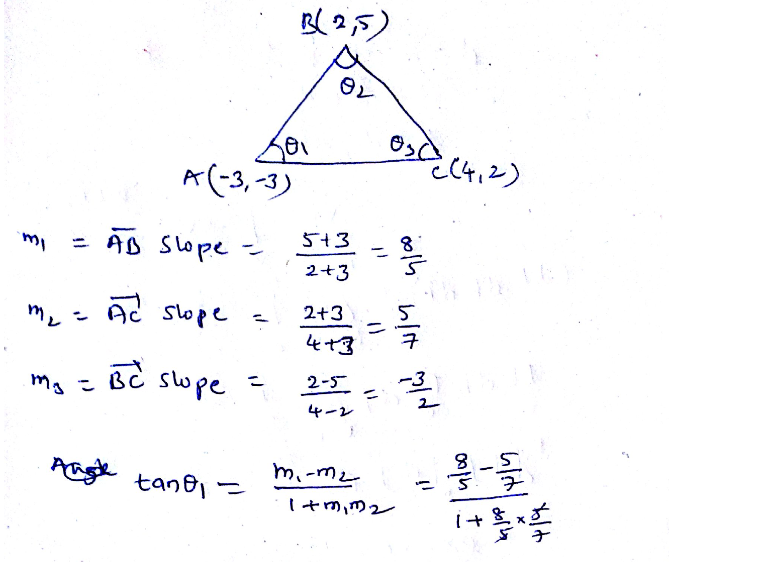 B(2,5)
θ2
θ1 θ3
A(-3,-3) C(4,2)
m1 = AB slope = 5+3/2+3 = 8/5
m2 = AC slope = 2+3/4+3 = 5/7
m3 = BC slope = 2-5/4-2 = -3/2
tanθ1 = m1-m2/1+m1m2 = 8/5-5/7/1+8/5×5/7